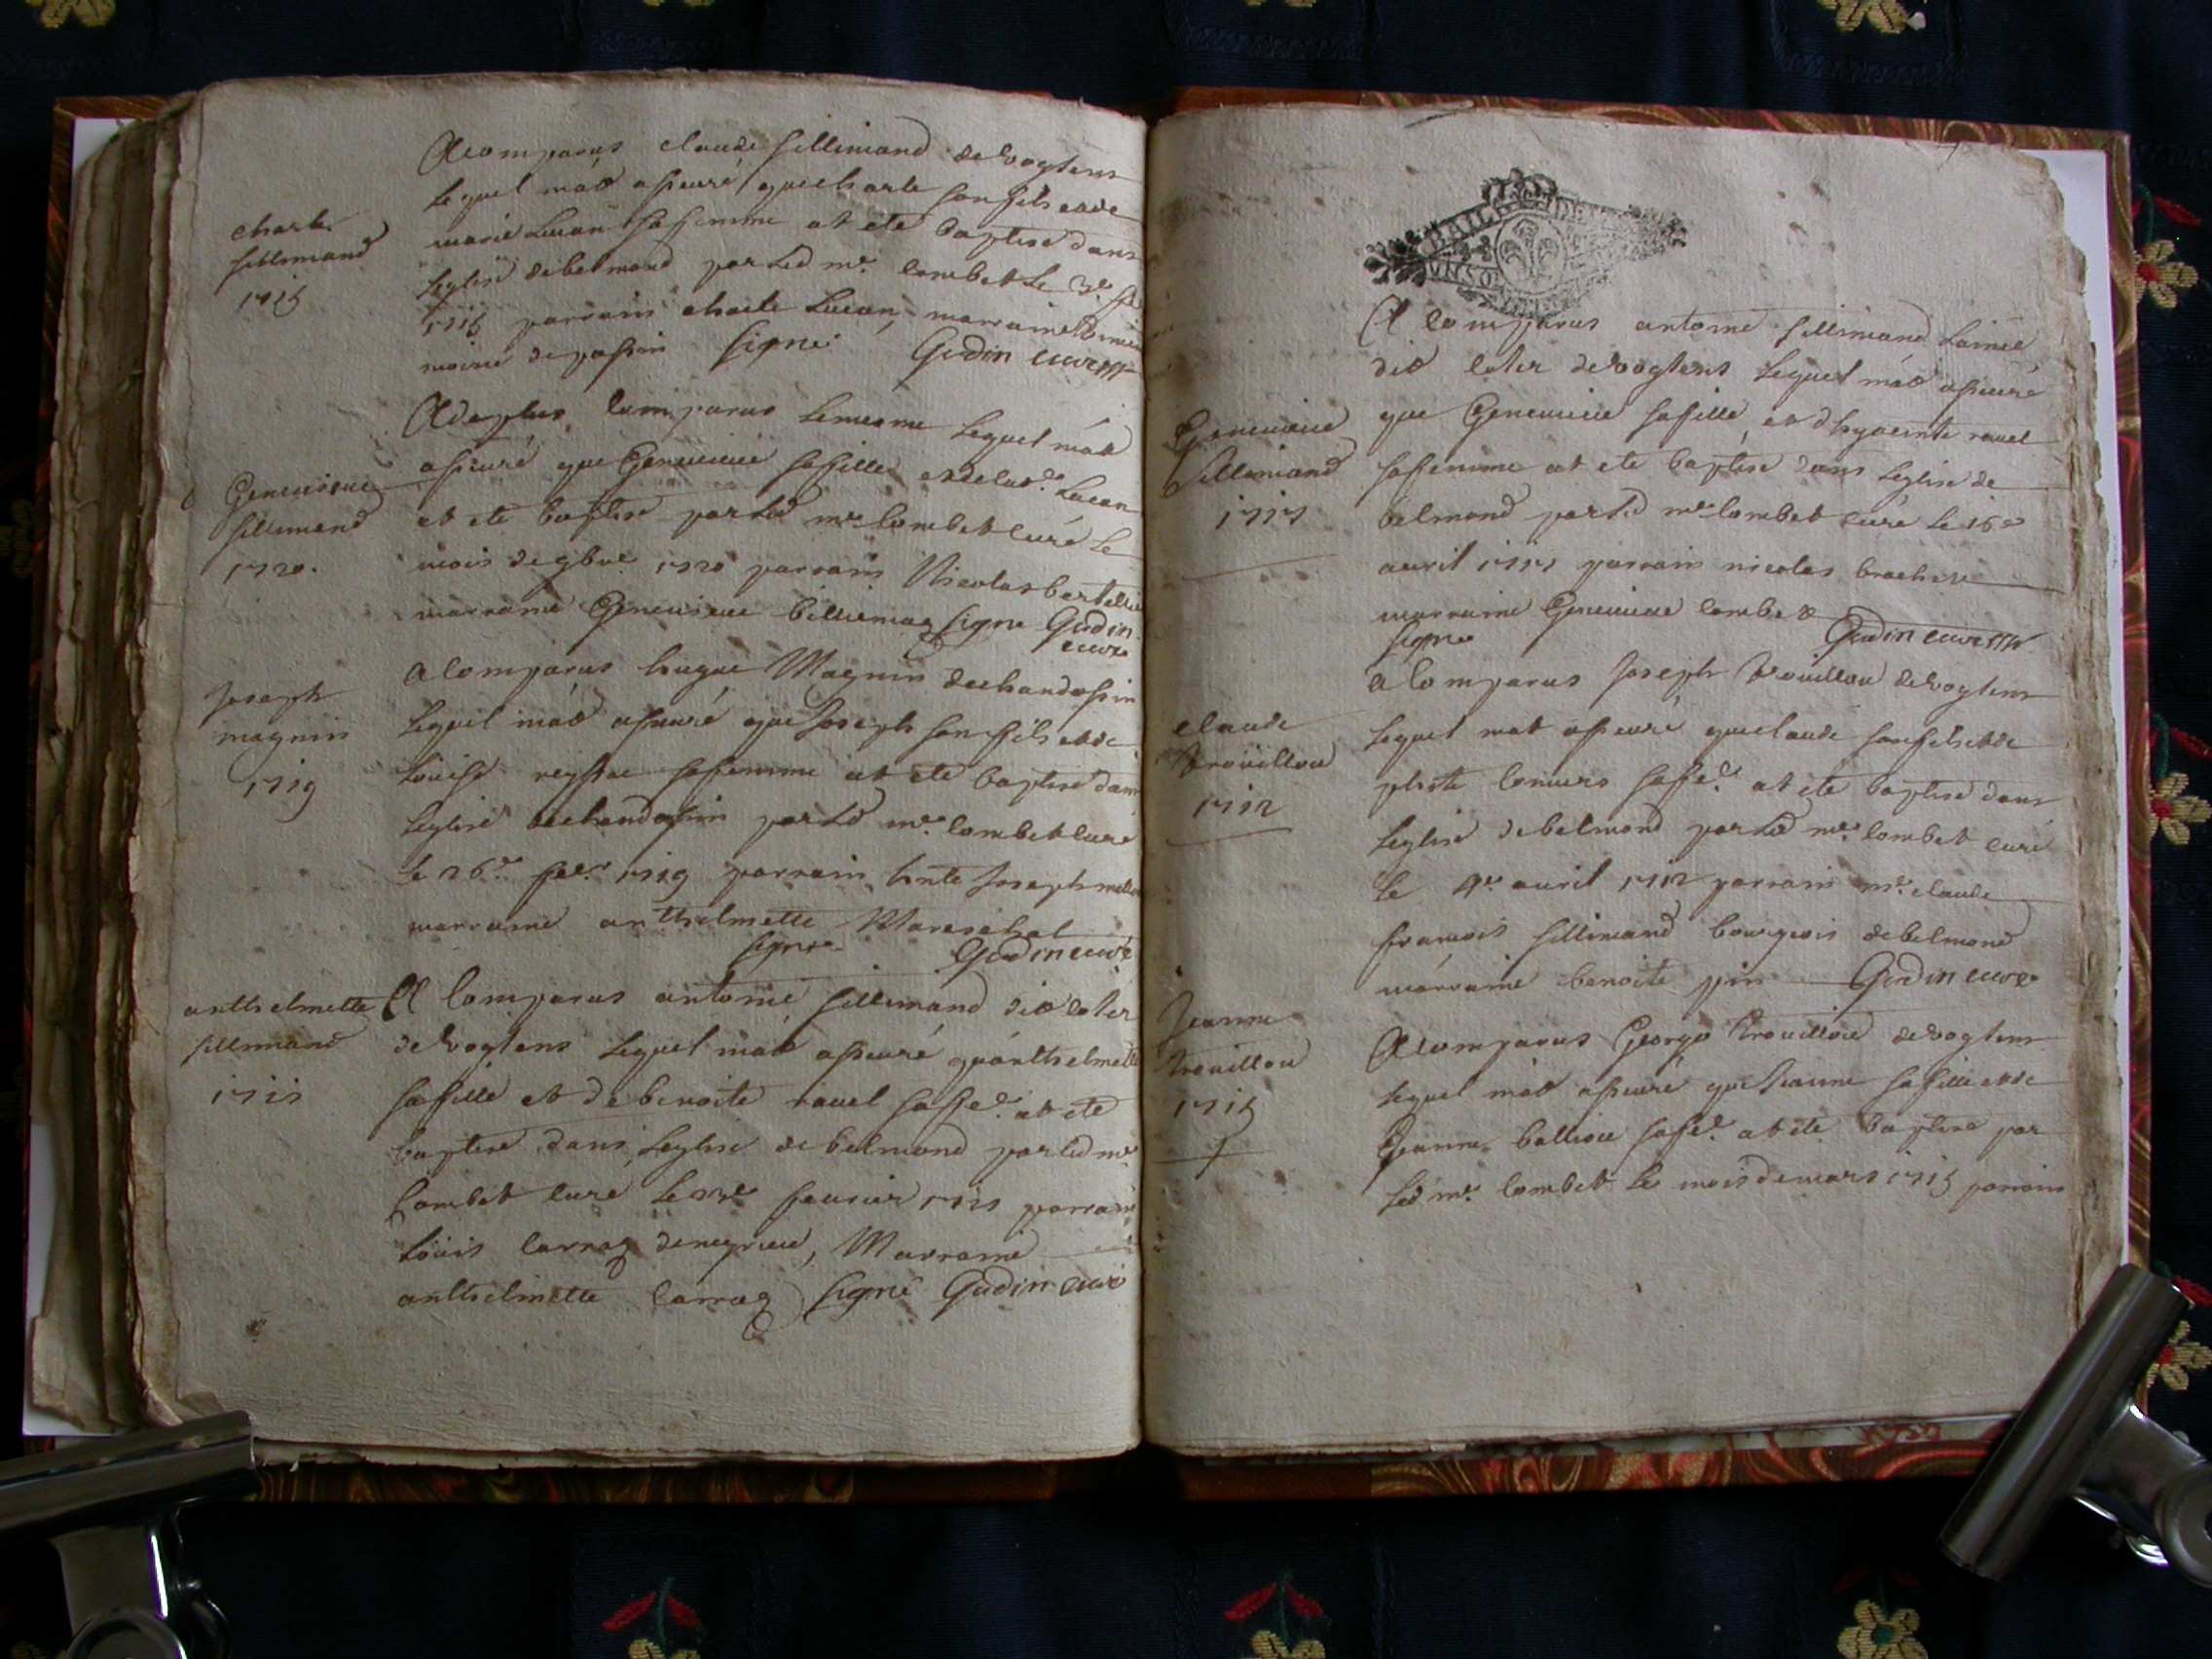 Acomparus claude sillimand de Vogtens
Lequel m'at asseuré que charle son fils et de
marie Lucan sa femme at eté baptisé dans
Leglise de belmond par Led mr. Combet Le
1715 parrain charle Lucan, marraine
moine de passin signé Gudin curé
charle
sillimand
1715
A de plus comparus Lemesme Lequel m'at
asseuré que Genevieve sa fille et de lad. Lucan
at eté baptisé par Led mr. Combet curé Le
mois de 9bre 1720 parrain Nicolas
marraine Genevieve billiemaz signé Gudin
curé
Genevieve
sillimand
1720.
A Comparus hugue Magnin de chandossin
Lequel m'at asseuré que Joseph son fils et de
Louise reyssie sa femme at eté baptisé dans
Leglise de chandossin par Led mr. Combet curé
Le 26e 1719 parrain Joseph
marraine anthelmette Mareschal
signé Gudin curé
Joseph
magnin
1719
A Comparus antoine sillimand dit
de Vogtens Lequel m'at asseuré qu'anthelmette
sa fille et de benoite ravel sa fe. at eté
baptisé dans Leglise de belmond par Led mr
Combet curé Le fevrier parrain
Louis Carraz de negrieu, Marraine
anthelmette Carraz signé Gudin curé
anthelmette
sillimand
BAIL
A Comparus antoine sillimand Lainé
dit de Vogtens Lequel m'at asseuré
que Genevieve sa fille et d'hyacinte ravel
sa femme at eté baptisé dans Leglise de
belmond par Led mr Combet curé Le 16e
avril 1717 parrain nicolas
marraine Genevieve Combet
signé Gudin curé
Genevieve
Sillimand
1717
A Comparus Joseph trouillou de Vogtens
Lequel m'at asseuré que claude son fils et de
sa fe. at eté baptisé dans
Leglise de belmond par Led mr. Combet curé
Le avril 1712 parrain mr. claude
francois sillimand bourgeois de belmond
marraine benoite pin Gudin curé
claude
trouillou
1712
Acomparus George trouillou de Vogtens
Lequel m'at asseuré que Jeanne sa fille et de
Jeanne ballion sa fe. at eté baptisé par
Led mr. Combet Le mois de mars 1715 parrain
Jeanne
trouillou
1715